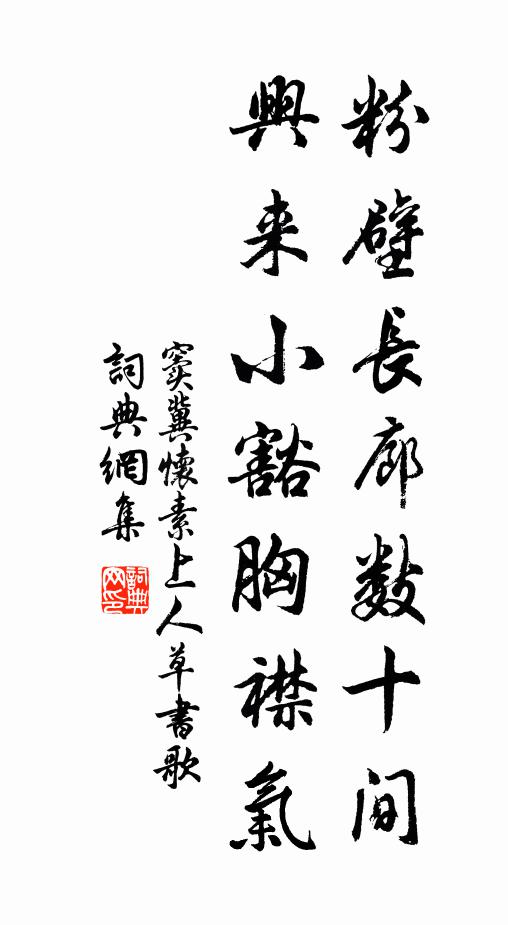 粉壁長廊数十间
興来小豁胸襟氣
窦冀懷素上人草書歌
詞典網集
詞典网印